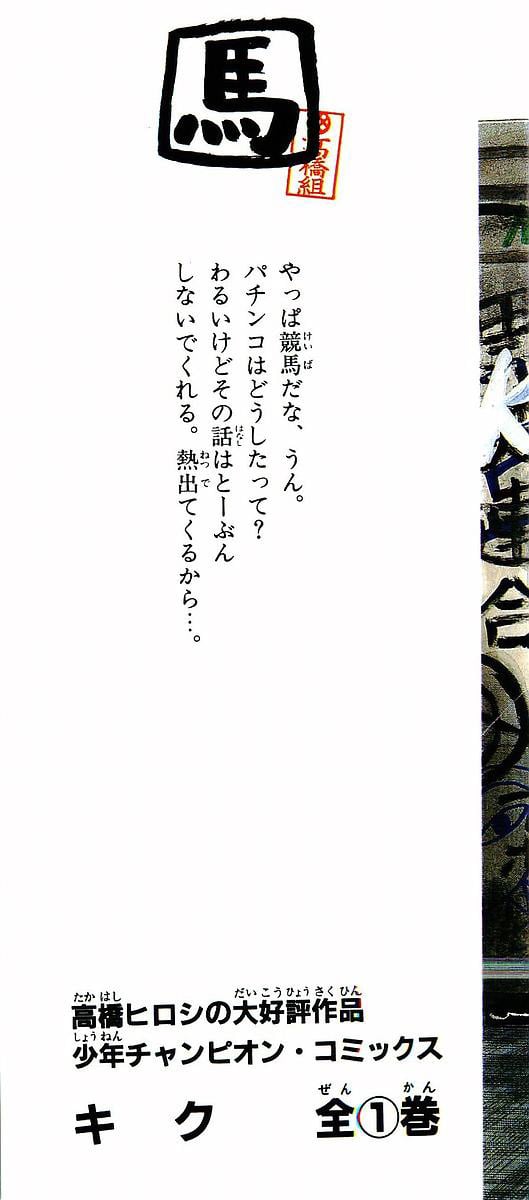 馬
高橋組
やっぱ競馬だな、うん。
パチンコはどうしたって?
わるいけどその話はとーぶん
しないでくれる。熱出てくるから…。
高橋ヒロシの大好評作品
少年チャンピオン・コミックス
キク 全①巻